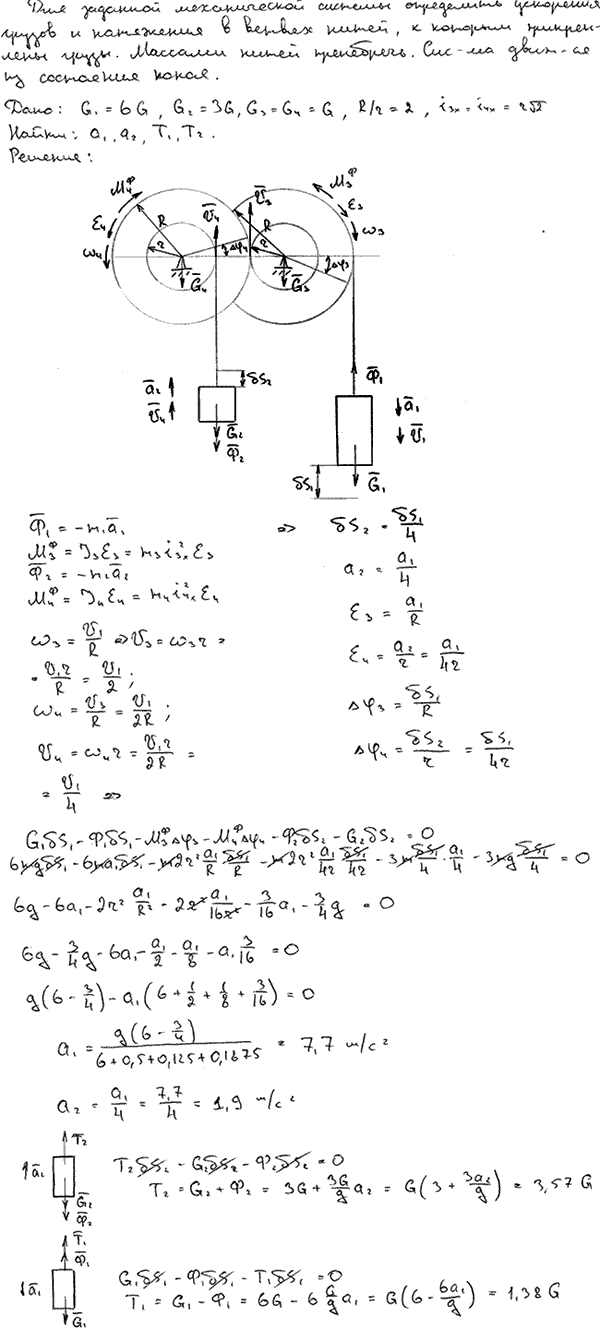 Для заданной механической системы определить ускорения
грузов и натяжения в ветвях нитей, к которым прикреп-
лены грузы. Массами нитей пренебречь. Сис-ма движ-ся
из состояния покоя.
Дано: G₁ = 6G, G₂ = 3G, G₃ = G₄ = G, R/r = 2, i₃ₓ = i₄ₓ = r√2
Найти: a₁, a₂, T₁, T₂.
Решение:
M₄ᶲ M₃ᶲ
ε₄ R V̅₄ V̅₃ R ε₃
ω₄ r Δφ₄ r Δφ₃ ω₃
G̅₄ G̅₃
δS₂ Φ̅₁
a̅₂ a̅₁
V̅₄ V̅₁
G̅₂
Φ̅₂
δS₁ G̅₁
Φ̅₁ = -m₁a̅₁ => δS₂ = δS₁/4
M₃ᶲ = J₃ε₃ = m₃i²₃ₓε₃
Φ̅₂ = -m₂a̅₂ a₂ = a₁/4
M₄ᶲ = J₄ε₄ = m₄i²₄ₓε₄
ω₃ = V₁/R => V₃ = ω₃r = ε₃ = a₁/R
= V₁r/R = V₁/2; ε₄ = a₂/r = a₁/4r
ω₄ = V₃/R = V₁/2R; Δφ₃ = δS₁/R
V₄ = ω₄r = V₁r/2R = Δφ₄ = δS₂/r = δS₁/4r
= V₁/4 =>
G₁δS₁ - Φ₁δS₁ - M₃ᶲΔφ₃ - M₄ᶲΔφ₄ - Φ₂δS₂ - G₂δS₂ = 0
6mgδS₁ - 6ma₁δS₁ - m2r² a₁/R δS₁/R - m2r² a₁/4r δS₁/4r - 3m δS₁/4 · a₁/4 - 3mg δS₁/4 = 0
6g - 6a₁ - 2r² a₁/R² - 2r² a₁/16r² - 3/16 a₁ - 3/4 g = 0
6g - 3/4 g - 6a₁ - a₁/2 - a₁/8 - a₁ 3/16 = 0
g(6 - 3/4) - a₁(6 + 1/2 + 1/8 + 3/16) = 0
a₁ = g(6 - 3/4)/(6 + 0,5 + 0,125 + 0,1875) = 7,7 м/с²
a₂ = a₁/4 = 7,7/4 = 1,9 м/с²
T₂
a̅₂ T₂δS₂ - G₂δS₂ - Φ₂δS₂ = 0
G̅₂ T₂ = G₂ + Φ₂ = 3G + 3G/g a₂ = G(3 + 3a₂/g) = 3,57 G
Φ̅₂
T̅₁
Φ̅₁
a̅₁ G₁δS₁ - Φ₁δS₁ - T₁δS₁ = 0
G̅₁ T₁ = G₁ - Φ₁ = 6G - 6 G/g a₁ = G(6 - 6a₁/g) = 1,38 G